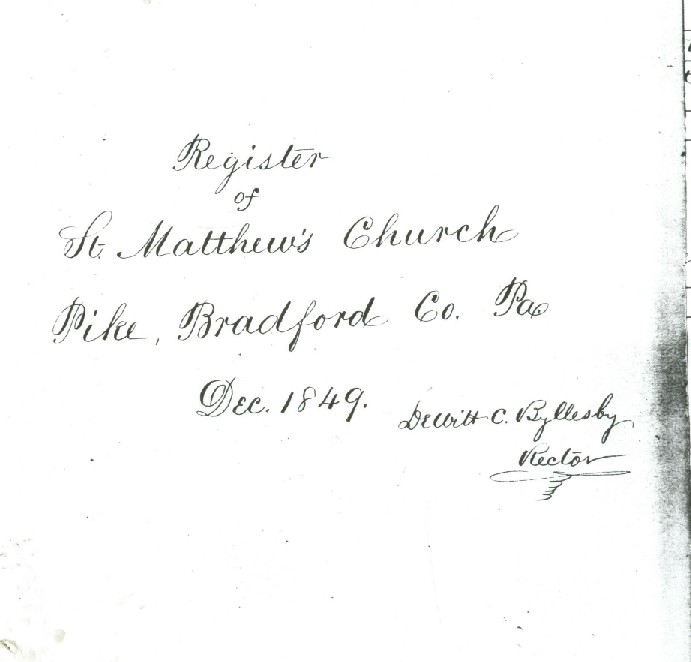 Register
of
St. Matthew's Church
Pike, Bradford Co. Pa
Dec. 1849.
Dewitt C. Byllesby
Rector